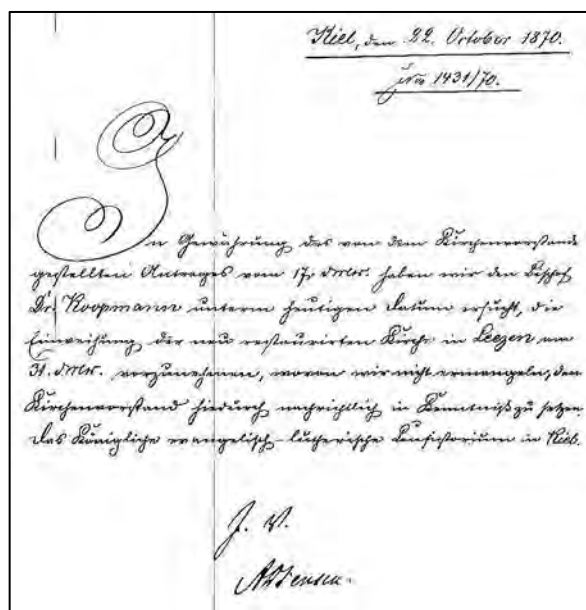 Kiel, den 22. October 1870.
Jrn 1431/70.
In Gewährung des von dem Kirchenvorstande
gestellten Antrages vom 17. d. Mts. haben wir den Bischof
Dr. Koopmann unterm heutigen Datum ersucht, die
Einweihung der neu restaurirten Kirche in Leezen am
31. d. Mts. vorzunehmen, wovon wir nicht ermangeln, den
Kirchenvorstand hierdurch nachrichtlich in Kenntniß zu setzen.
Das Königliche evangelisch-lutherische Consistorium in Kiel.
J. V.